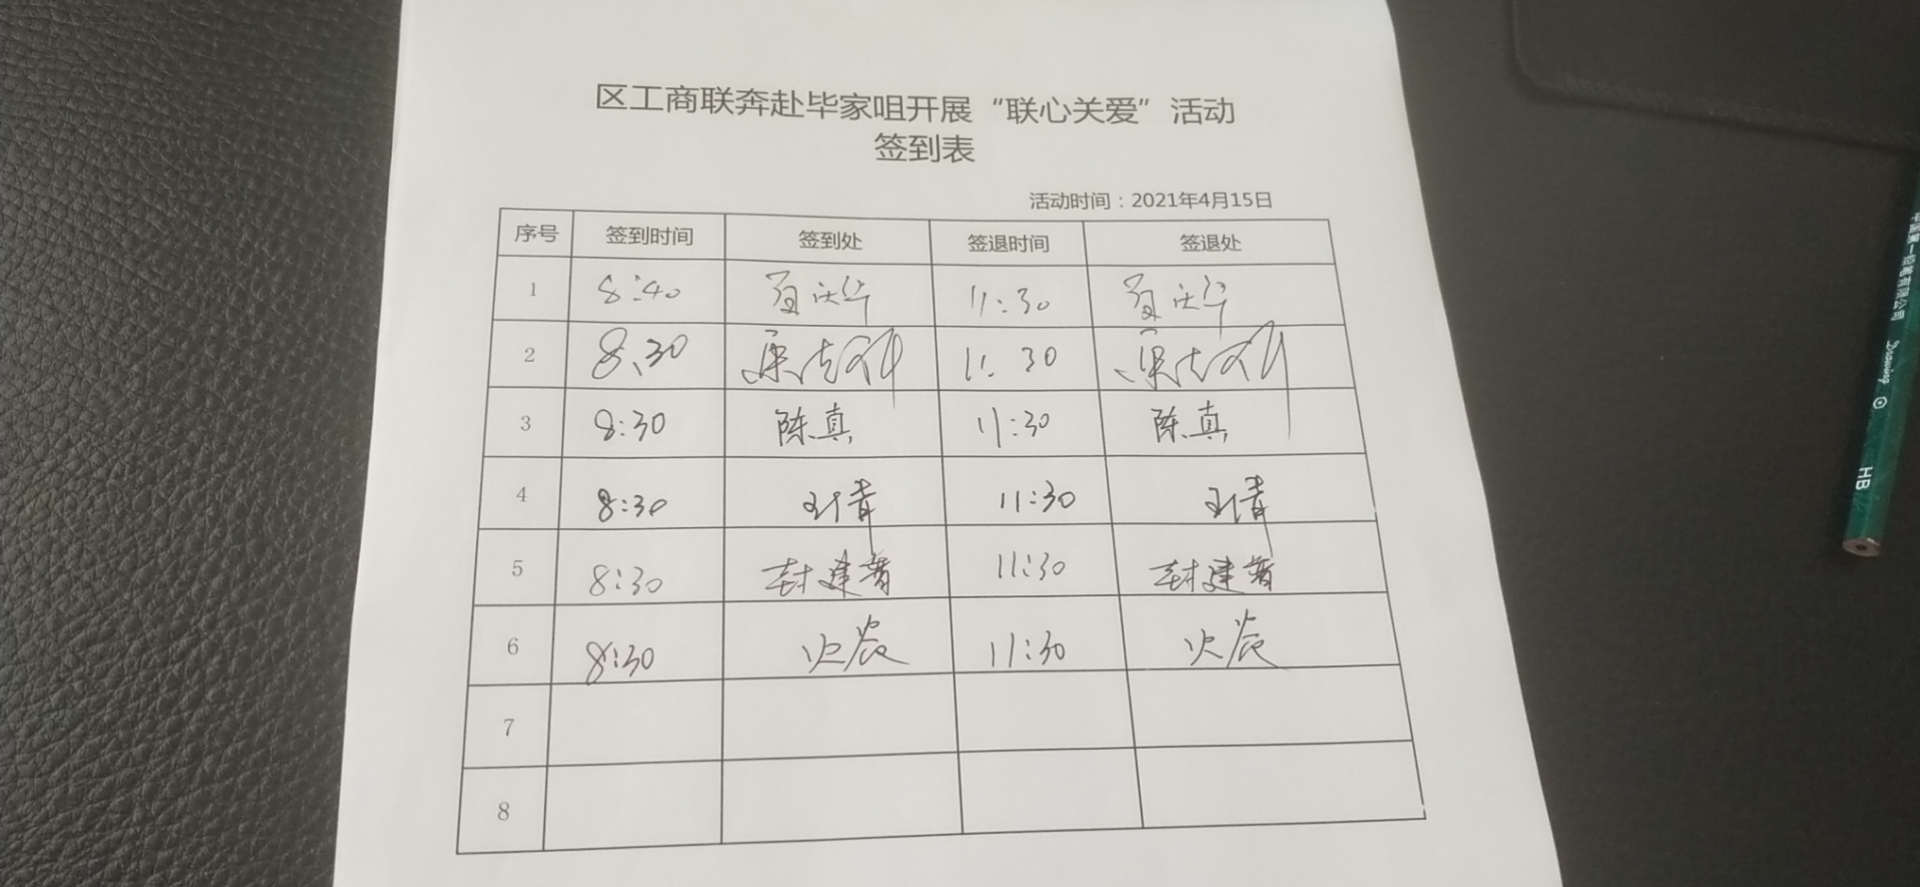 区工商联奔赴毕家咀开展“联心关爱”活动
签到表
活动时间：2021年4月15日
序号 签到时间 签到处 签退时间 签退处
1 8:40 11:30
2 8:30 11:30
3 8:30 陈真 11:30 陈真
4 8:30 11:30
5 8:30 封建蓉 11:30 封建蓉
6 8:30 11:30
7
8
中国第一铅笔有限公司 Drawing HB